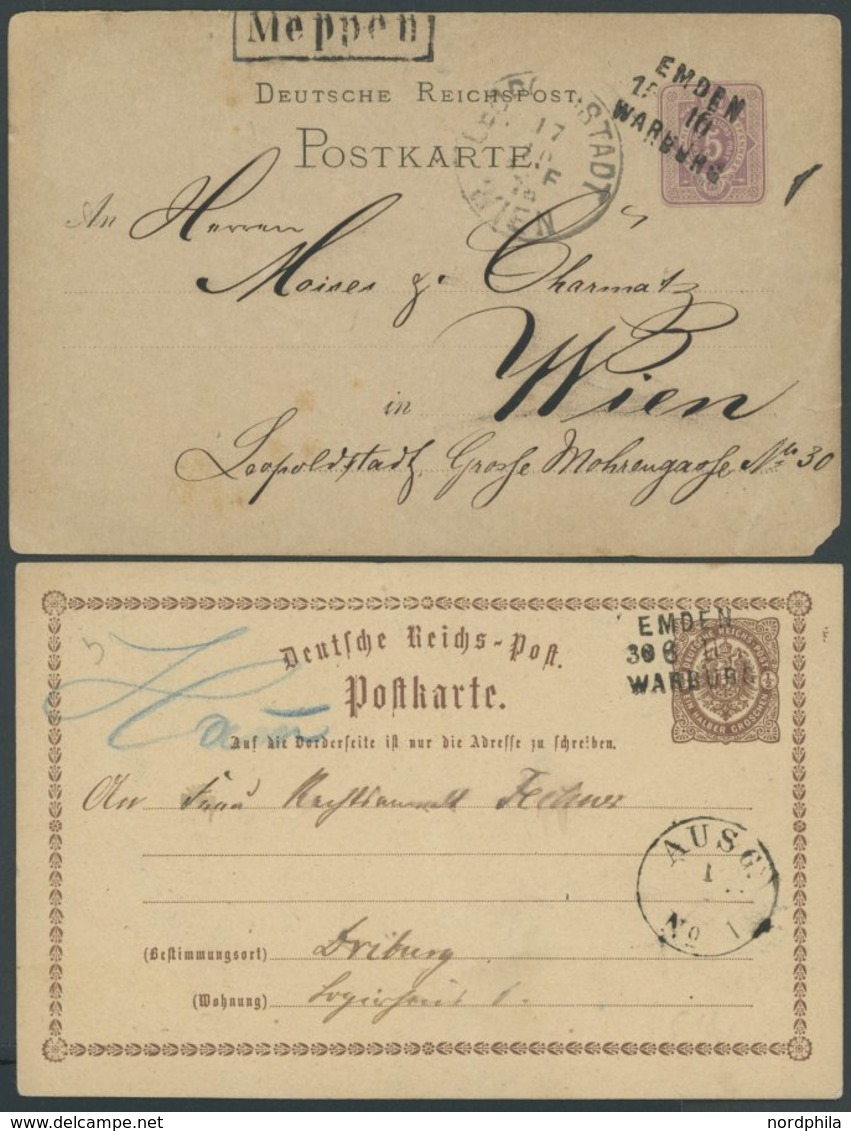 Meppen
DEUTSCHE REICHSPOST.
POSTKARTE.
EMDEN
10
WARBURG
17
F
WIEN
5
An Herren
Moises J. Charmatz
in Wien
Leopoldstadt, Grosse Mohrengasse No 30
Deutsche Reichs-Post.
Postkarte.
Auf die Vorderseite ist nur die Adresse zu schreiben.
EMDEN
30 6 II
WARBURG
DEUTSCHE REICHS-POST
EIN HALBER GROSCHEN
An Frau Rechtsanwalt Fechner
AUSG.
1
No 1
(Bestimmungsort) Driburg
(Wohnung) Logierhaus
nordphila